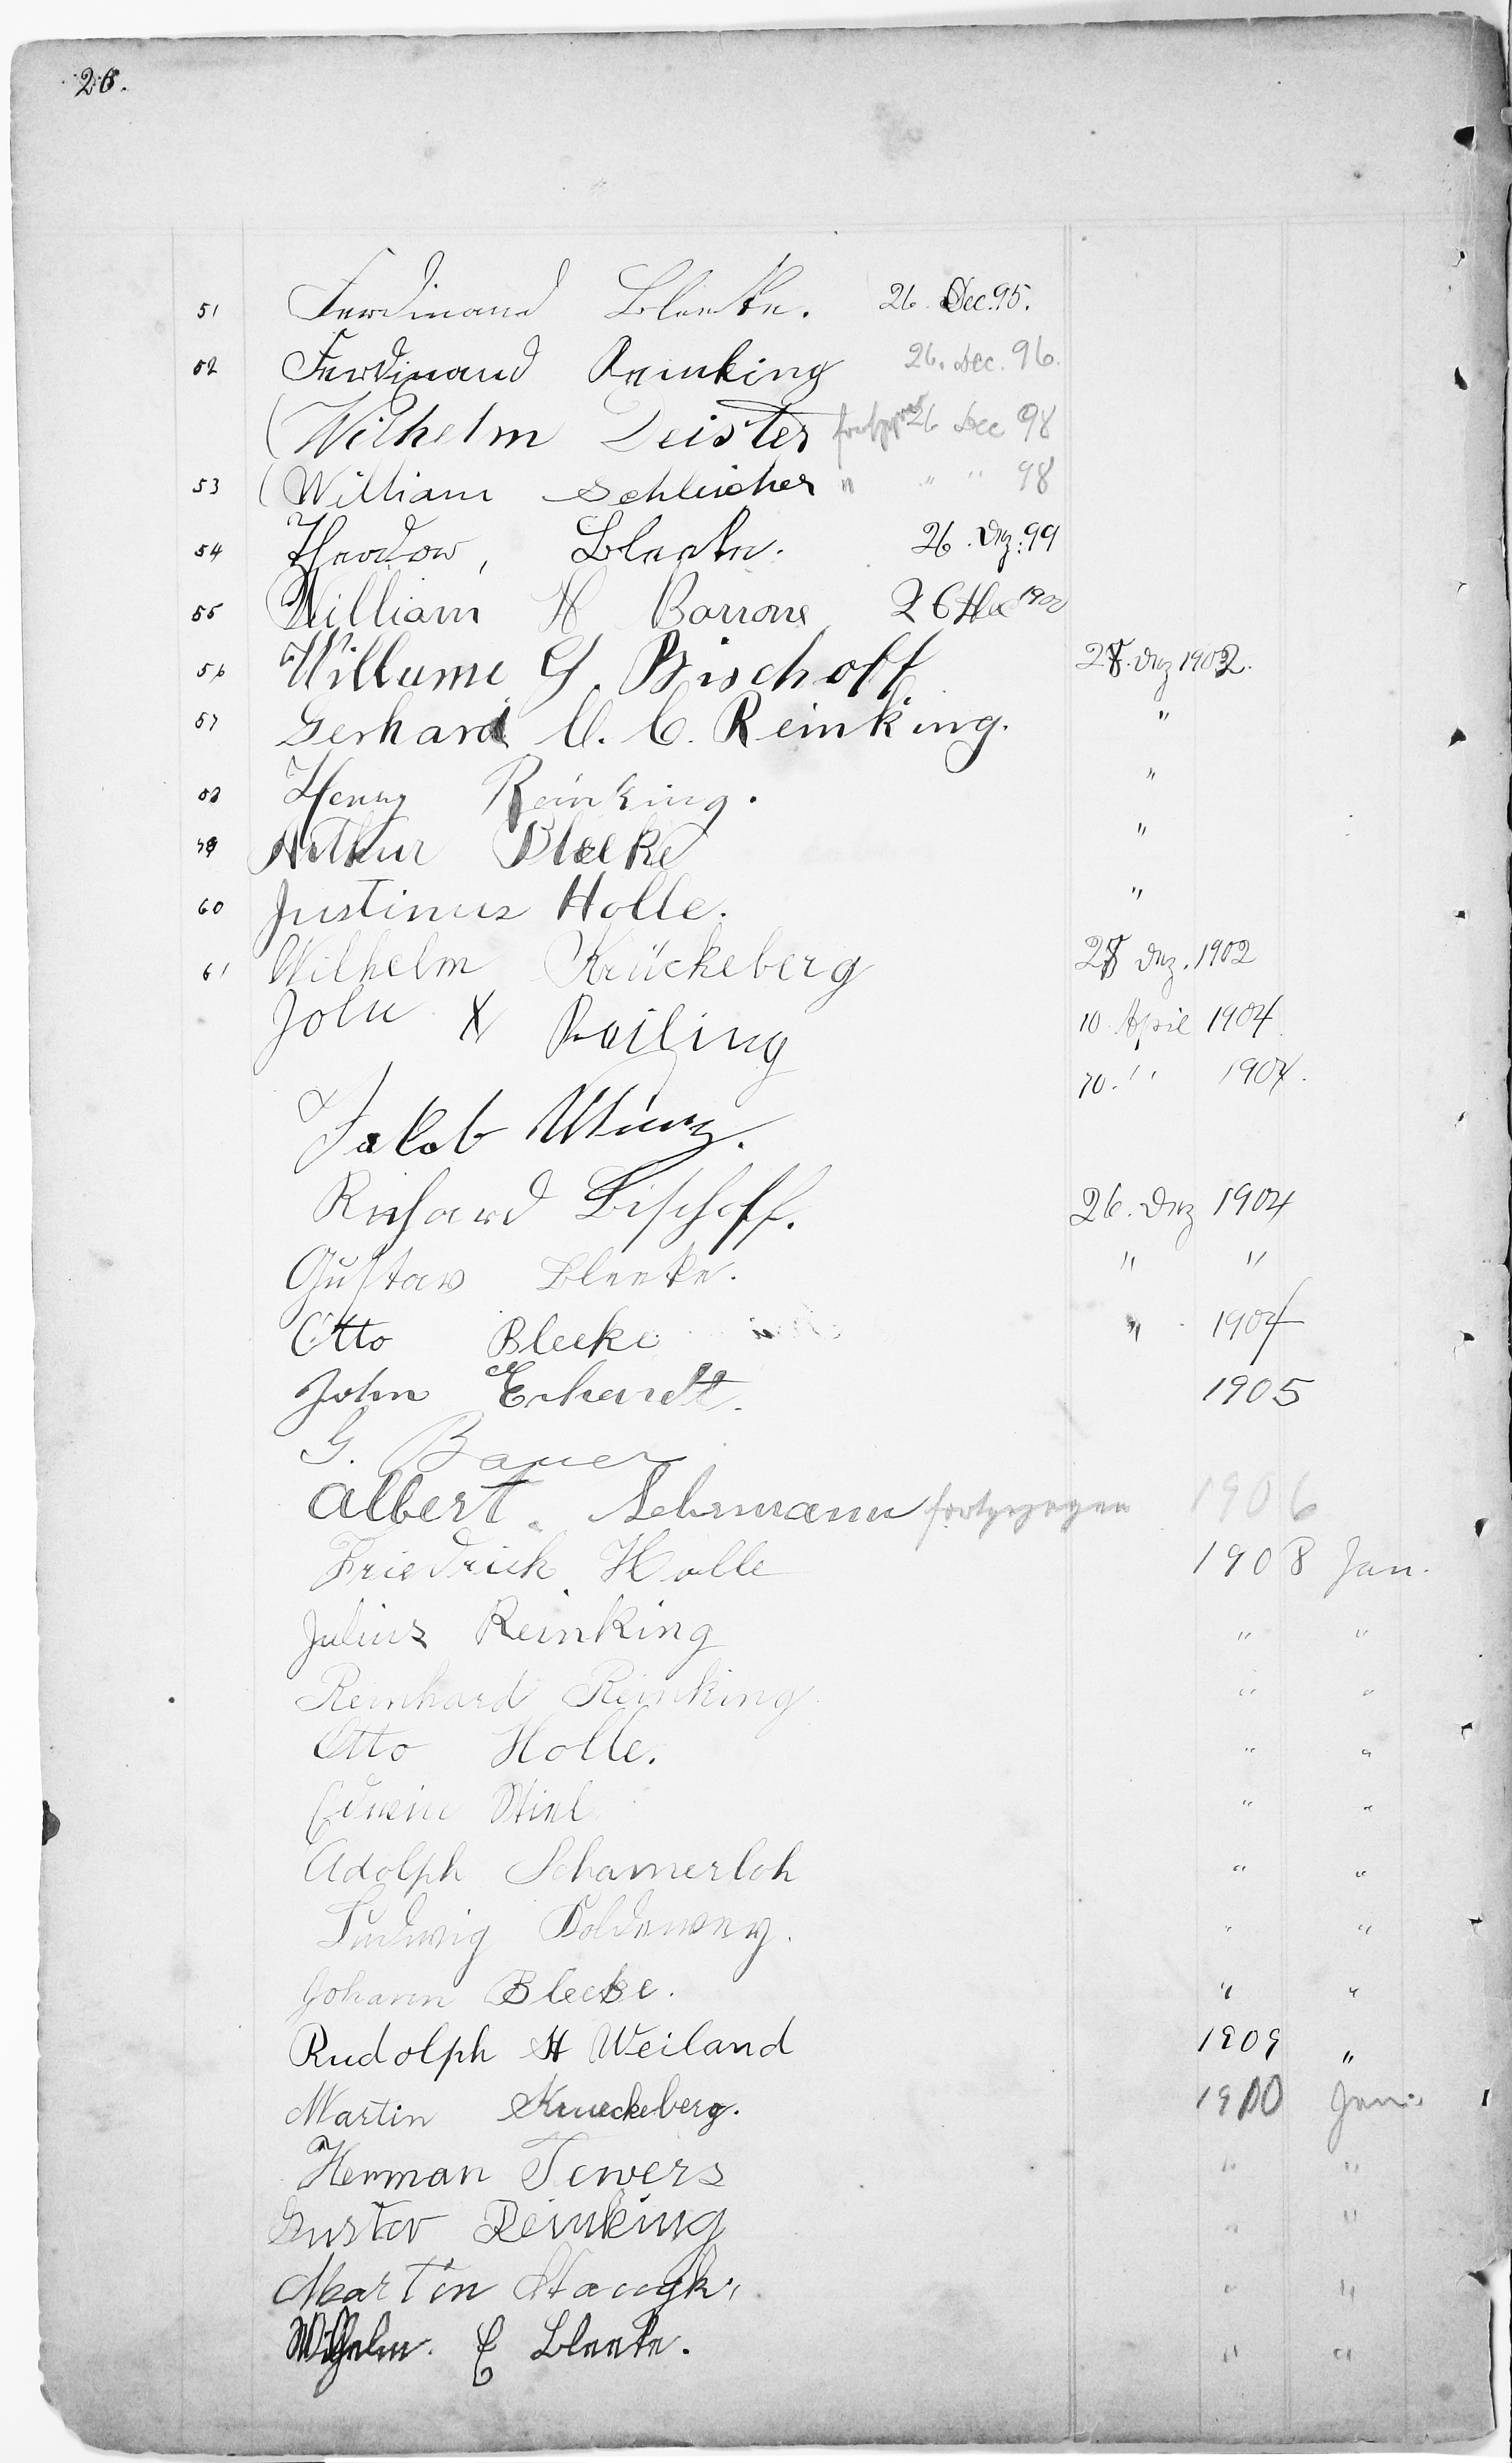 26.
51 Ferdinand Bleeke. 26. Dec. 95.
52 Ferdinand Reinking 26. Dec. 96.
(Wilhelm Deister 26 Dec 98
53 (William Schleicher " " " 98
54 Theodor, Bleeke. 26. Dez. 99
55 William H 26 1900
56 G. Bischoff. 28. Dez 1902.
57 Gerhard C. Reinking. "
58 Henry Reinking. "
59 Arthur Bleeke "
60 Justinus Holle. "
61 Wilhelm Krückeberg 28 Dez. 1902
John X Reiling 10. April 1904
Jakob 10. " 1904.
Richard Bischoff. 26. Dez 1904
Gustav Bleeke. " "
Otto Bleeke " 1904
John Erhardt. 1905
G. Bauer
Albert. Lehrmann fortgezogen 1906
Friedrich Holle 1908 Jan.
Julius Reinking " "
Reinhard Reinking " "
Otto Holle. " "
Edwin Stiel " "
Adolph Schamerloh " "
Ludwig Koldewey. " "
Johann Bleeke. " "
Rudolph H Weiland 1909 "
Martin Krueckeberg. 1910 Jan.
Herman Tewers " "
Gustav Reinking " "
Martin " "
Wilhelm. E Bleeke. " "